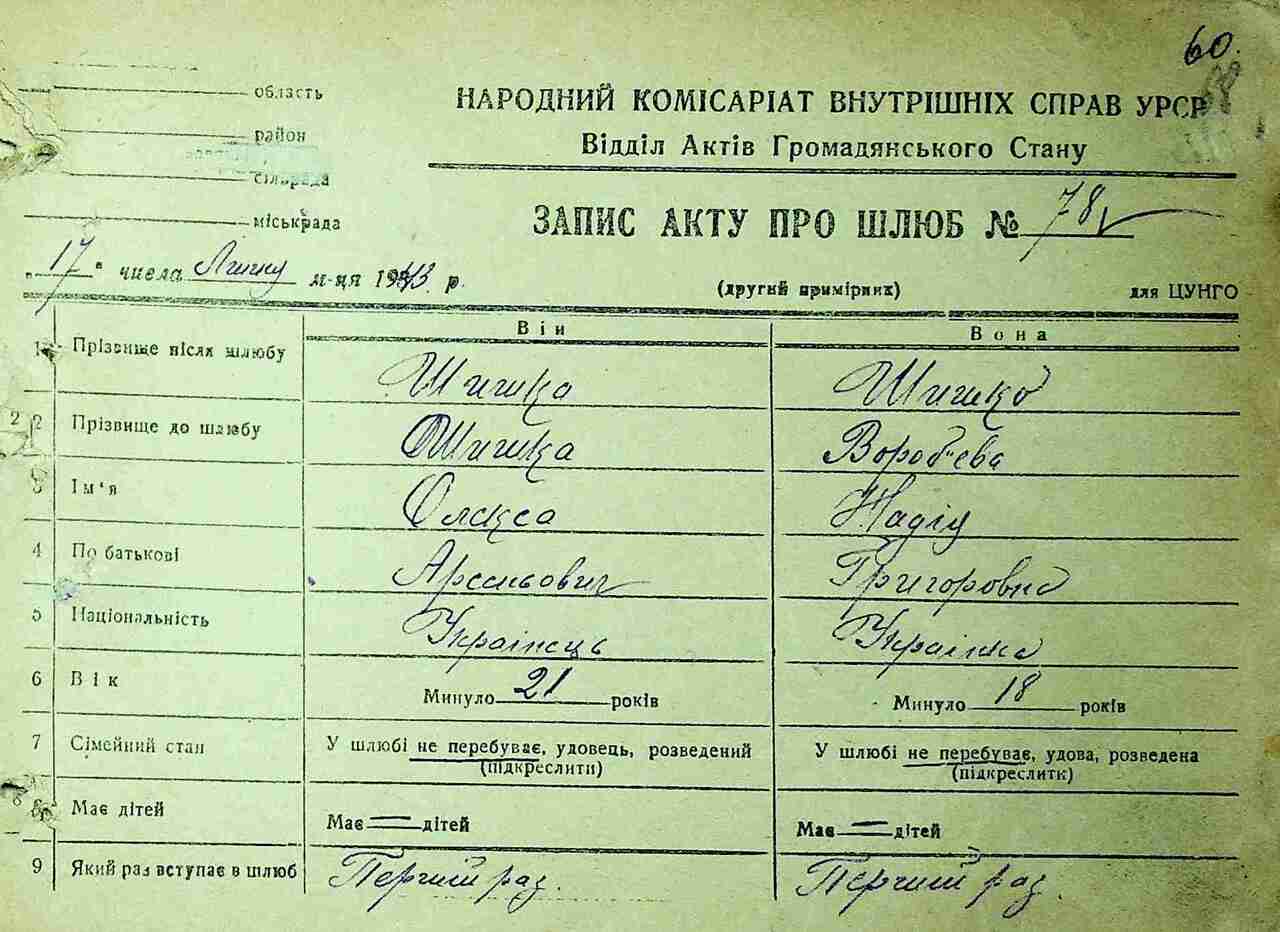 60.
область
район
сільрада
міськрада
НАРОДНИЙ КОМІСАРІАТ ВНУТРІШНІХ СПРАВ УРСР
Відділ Актів Громадянського Стану
ЗАПИС АКТУ ПРО ШЛЮБ № 78
"17" числа Липня м-ця 1943 р.
(другий примірник) для ЦУНГО
Він Вона
1 Прізвище після шлюбу Шишка Шишко
2 Прізвище до шлюбу Шишка Воробьева
3 Ім'я Олекса Надія
4 По батькові Арсеньович Григоровна
5 Національність Українець Українка
6 Вік Минуло 21 років Минуло 18 років
7 Сімейний стан У шлюбі не перебуває, удовець, розведений У шлюбі не перебуває, удова, розведена
(підкреслити) (підкреслити)
8 Має дітей Має — дітей Має — дітей
9 Який раз вступає в шлюб Перчий раз. Перчий раз.